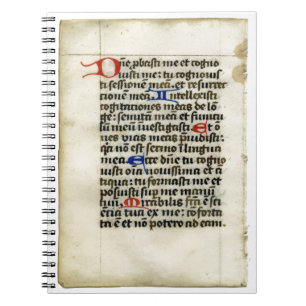 Dñe pbasti me et cogno
uisti me: tu cognouis
ti sessionē meā. et resurrec
tionē meā. Intellexisti
cogitationes meas de lō
ge: semitā meā et funicu
lū meū inuestigasti. Et o
mnes uias meas puidisti: q̄
nō est sermo ī lingua
mea. Ecce dñe tu cogno
uisti oīa nouissima et ā
tiqua: tu formasti me et
posuisti sup me manū
tuā. Mirabilis fcā ē sci
entia tua ex me: cōforta
ta ē et nō potero ad eam.